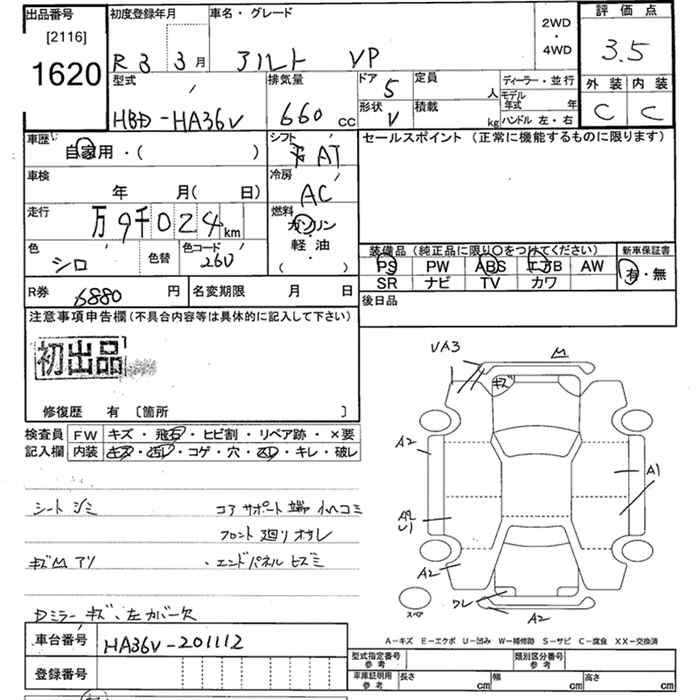 出品番号
[2116]
1620
初度登録年月 車名・グレード 2WD・4WD 評価点
R3 3月 アルト VP 3.5
型式 排気量 ドア 定員 ディーラー・並行 外装 内装
HBD-HA36V 660cc 5 人 モデル年式 年 C C
形状 積載 ハンドル 左・右
V kg
車歴 シフト セールスポイント (正常に機能するものに限ります)
自家用・( ) AT
車検 冷房
年 月( 日) AC
走行 燃料
万9千024km ガソリン
軽油
( )
色 色替 色コード
シロ 26U
装備品 (純正品に限り○をつけてください) 新車保証書
PS PW ABS エアB AW 有・無
SR ナビ TV カワ
R券 6880円 名変期限 月 日 後日品
注意事項申告欄(不具合内容等は具体的に記入して下さい)
初出品
修復歴 有 〔箇所 〕
検査員 FW キズ・飛石・ヒビ割・リペア跡・×要
記入欄 内装 キズ・汚レ・コゲ・穴・スレ・キレ・破レ
シート シミ コアサポート端 小ヘコミ
フロント廻りオサレ
キズM アリ ・エンドパネル ヒズミ
Dミラー キズ、左カバー欠
VA3 M
キズ
A2 A1
A2
U1
A2 ワレ
スペア A2
A-キズ E-エクボ U-凹み W-補修跡 S-サビ C-腐食 XX-交換済
車台番号 HA36V-201112
登録番号
型式指定番号 参考 類別区分番号 参考
車庫証明用 参考 長さ cm 幅 cm 高さ cm